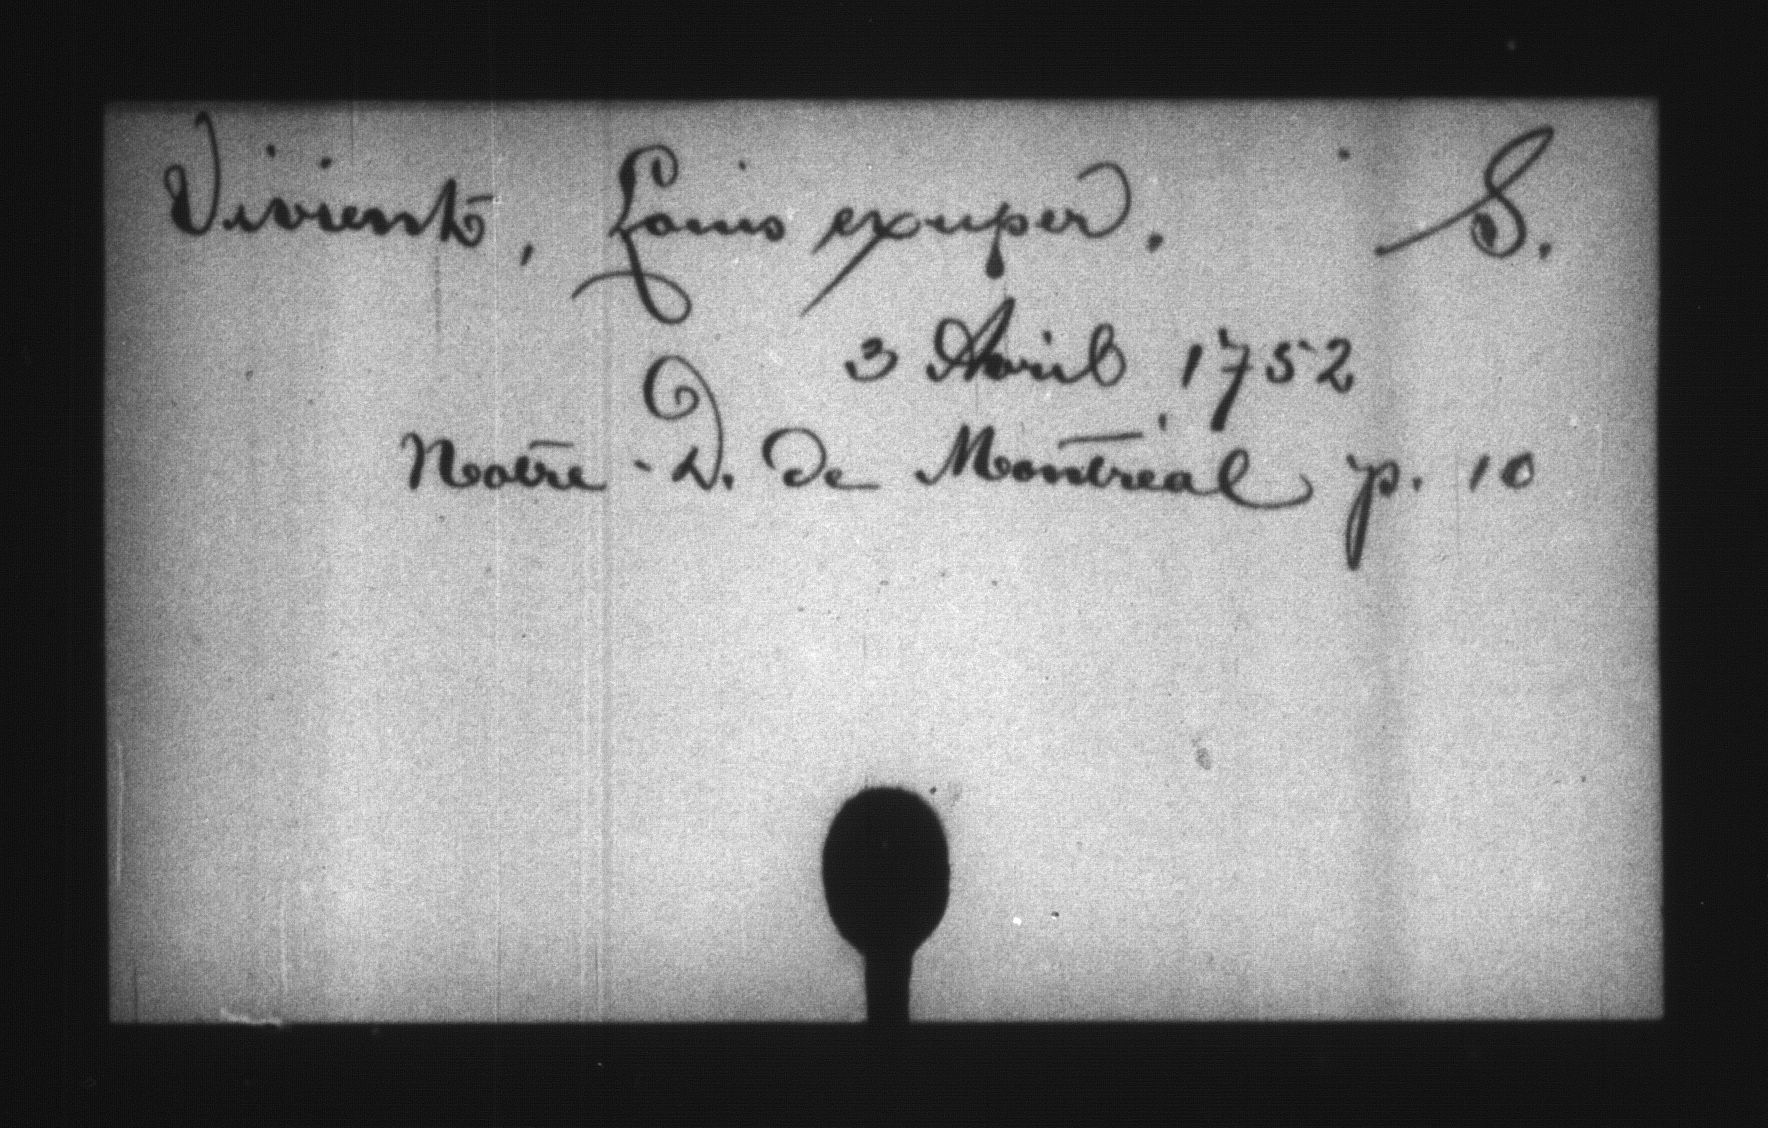 Vivient, Louis exuper. S.
3 Avril 1752
Notre-D. de Montréal p. 10